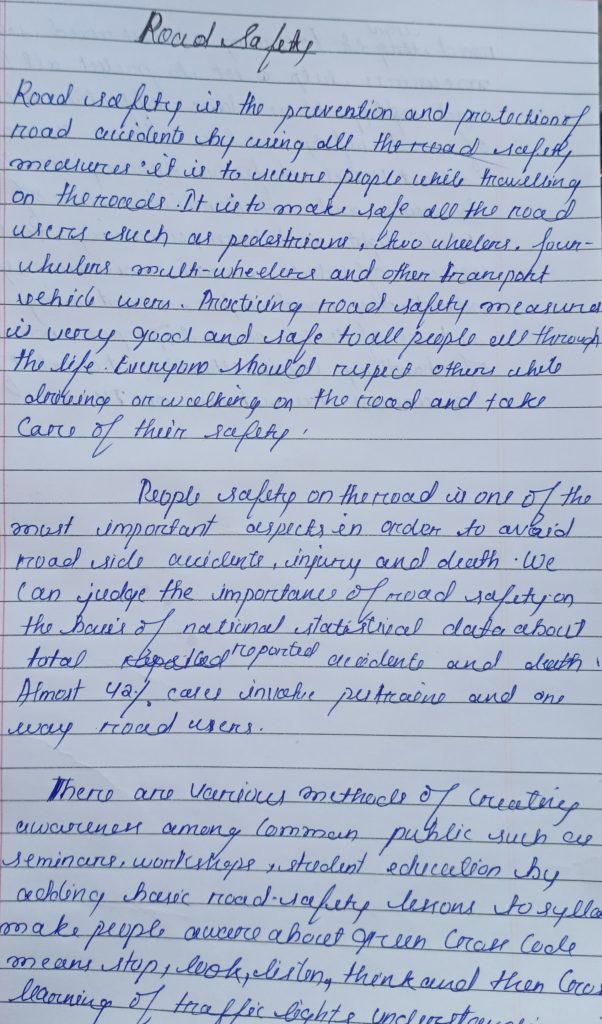 Road Safety
Road safety is the prevention and protection of
road accidents by using all the road safety
measures it is to secure people while travelling
on the roads. It is to make safe all the road
users such as pedestrians, two wheelers, four-
wheelers multi-wheelers and other transport
vehicle users. Practicing road safety measures
is very good and safe to all people all through
the life. Everyone should respect others while
driving or walking on the road and take
Care of their safety.
People safety on the road is one of the
most important aspects in order to avoid
road side accidents, injury and death. We
Can judge the importance of road safety on
the basis of national statistical data about
total reported accidents and death.
Almost 42% cases involve and one
way road users.
There are various methods of Creating
awareness among Common public such as
seminars, workshops, student education by
adding basic road-safety lessons to sylla
make people aware about green Cross Code
means stop, look, listen, think and then Cros
learning of traffic lights